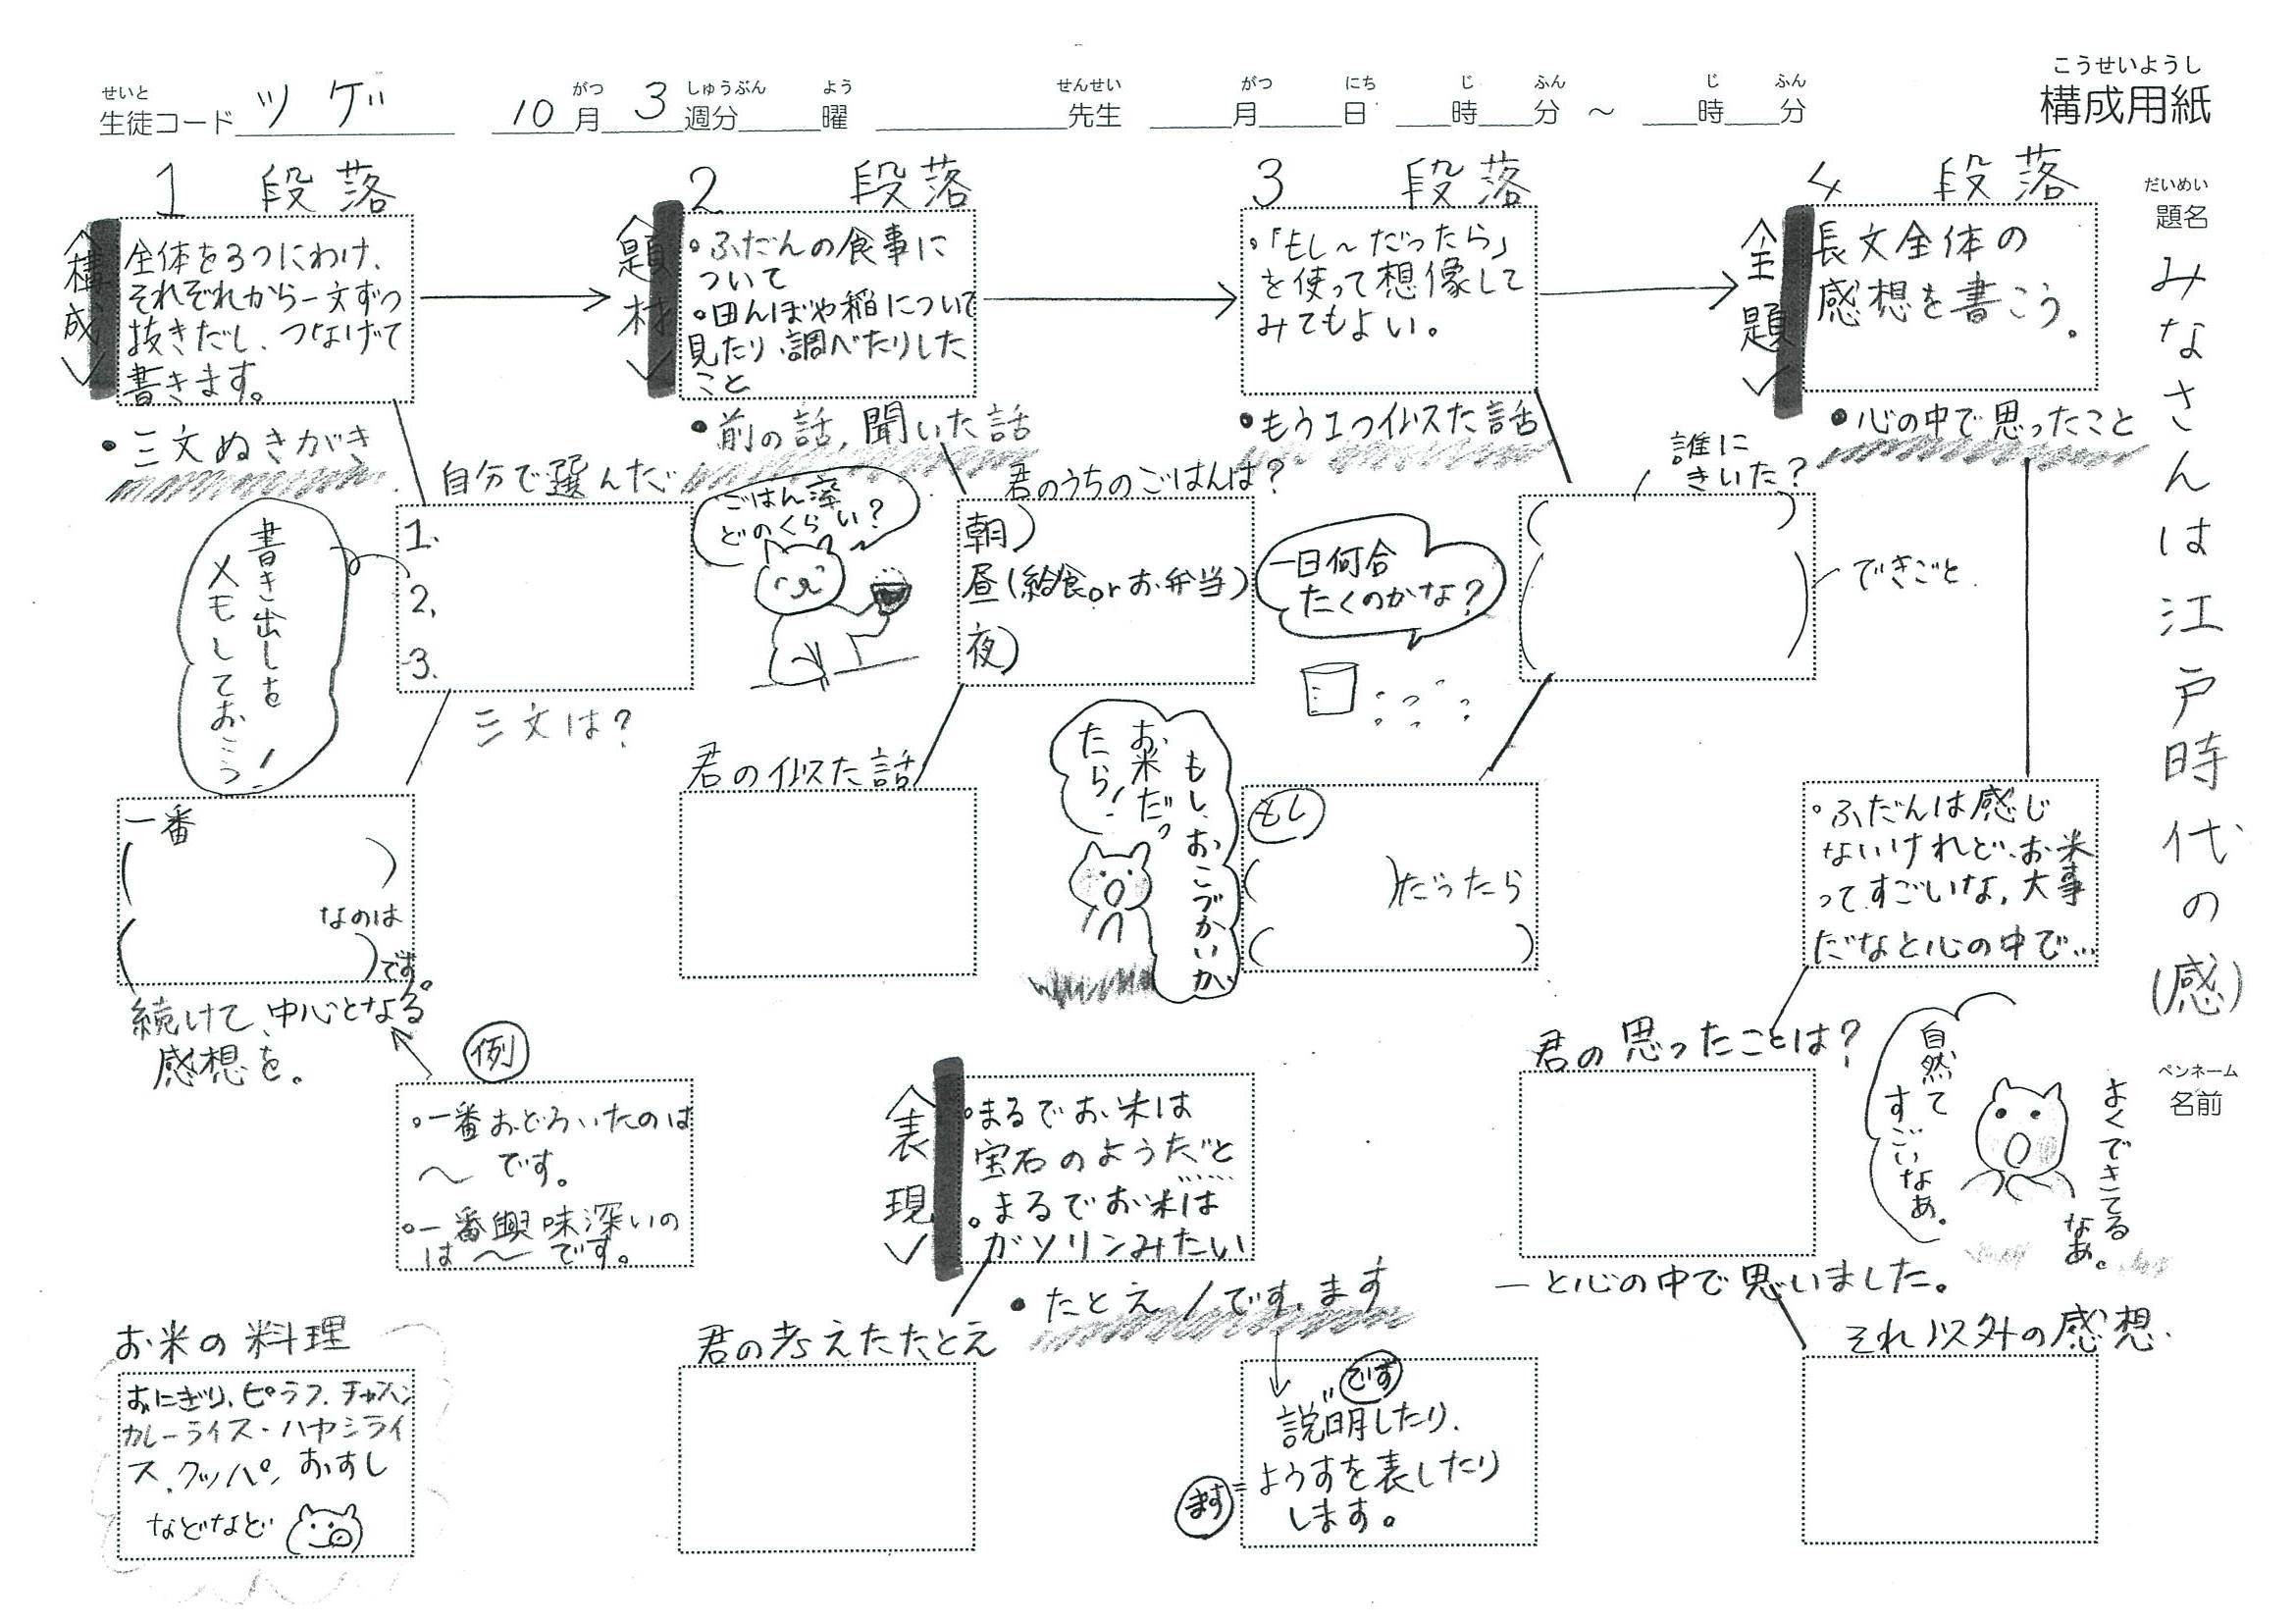 せいと がつ しゅうぶん よう せんせい がつ にち じ ふん じ ふん
生徒コード ツゲ 10月 3週分 曜 先生 月 日 時 分 ～ 時 分
こうせいようし
構成用紙
だいめい
題名
みなさんは江戸時代の(感)
ペンネーム
名前
1 段落
〈構成〉
全体を3つにわけ、
それぞれから一文ずつ
抜きだし、つなげて
書きます。
・三文ぬきがき
自分で選んだ
1.
2.
3.
書き出しを
メモしておこう!
三文は?
一番
( )
なのは
( )です。
続けて、中心となる
感想を。
例
。一番おどろいたのは
～ です。
。一番興味深いの
は ～ です。
お米の料理
おにぎり、ピラフ、チャーハン
カレーライス・ハヤシライ
ス、クッパ、おすし
などなど
2 段落
〈題材〉
。ふだんの食事に
ついて
。田んぼや稲について
見たり、調べたりした
こと
・前の話,聞いた話
ごはん率
どのくらい?
君のうちのごはんは?
朝)
昼(給食orお弁当)
夜)
一日何合
たくのかな?
君の似た話
〈表現〉
。まるでお米は
宝石のようだと
。まるでお米は
ガソリンみたい
・たとえ/です、ます
君の考えたたとえ
です
"
説明したり、
ます=ようすを表したり
します。
3 段落
。「もし～だったら」
を使って想像して
みてもよい。
・もう1つ似た話
誰に
きいた?
( )
( )
できごと
もし、おこづかいが、
お米だっ
たら!
もし
( )だったら
( )
4 段落
〈主題〉
長文全体の
感想を書こう。
・心の中で思ったこと
。ふだんは感じ
ないけれど、お米
ってすごいな,大事
だなと心の中で…
君の思ったことは?
自然て
すごいなぁ。
よくできてる
なぁ。
―と心の中で思いました。
それ以外の感想.